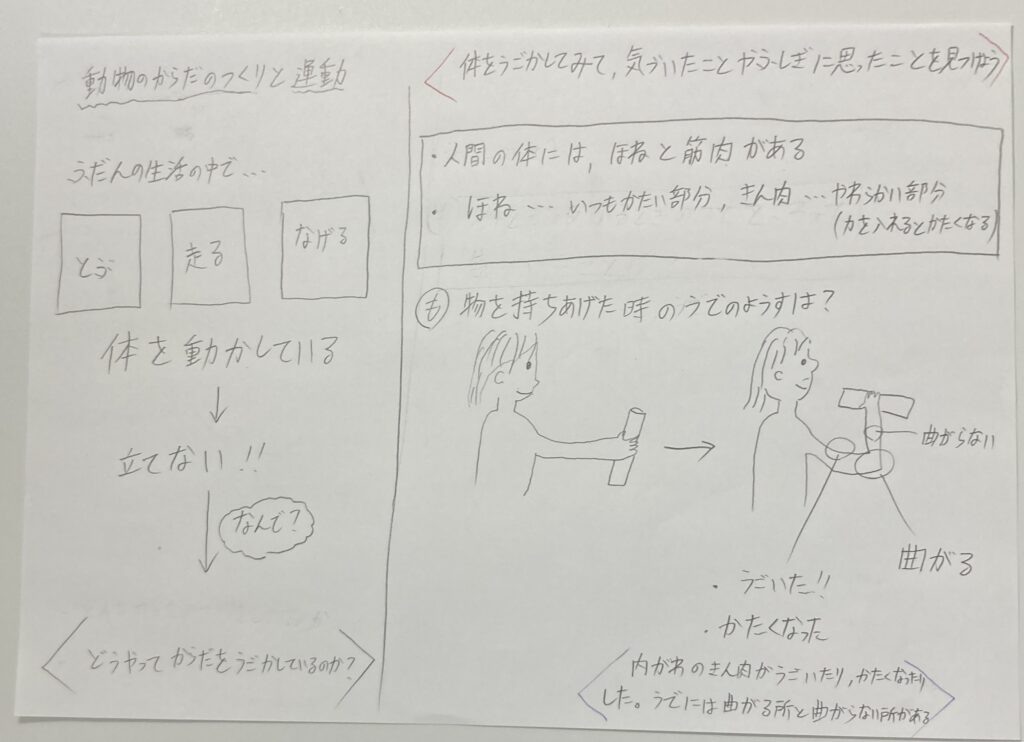 動物のからだのつくりと運動
ふだんの生活の中で…
とぶ
走る
なげる
体を動かしている
↓
立てない!!
↓
なんで?
どうやってからだをうごかしているのか?
体をうごかしてみて,気づいたことやふしぎに思ったことを見つけよう
・人間の体には,ほねと筋肉がある
・ほね…いつもかたい部分,きん肉…やわらかい部分
(力を入れるとかたくなる)
も 物を持ちあげた時のうでのようすは?
→
曲がらない
曲がる
・うごいた!!
・かたくなった
内がわのきん肉がうごいたり,かたくなったり
した。うでには曲がる所と曲がらない所がある